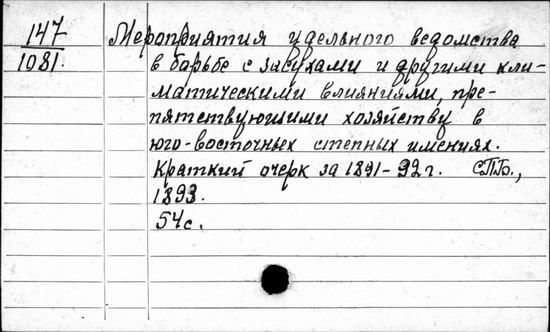 147 Мероприятия удельного ведомства
1081. в борьбе с засухами и другими кли-
матическими влияниями, пре-
пятствующими хозяйству в
юго-восточных степных имениях.
Краткий очерк за 1891-92 г. СПб.,
1893.
54 с.